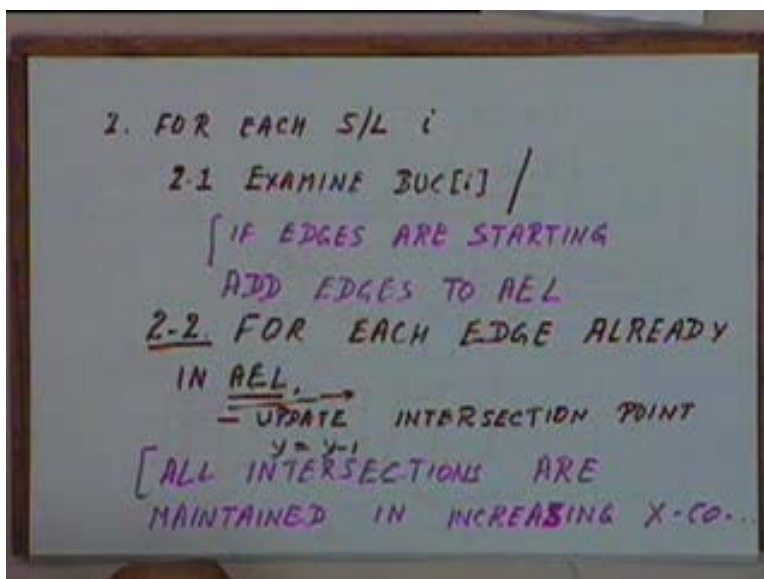 2. FOR EACH S/L i
2.1 EXAMINE BUC[i] /
[IF EDGES ARE STARTING
ADD EDGES TO AEL
2-2. FOR EACH EDGE ALREADY
IN AEL,
- UPDATE INTERSECTION POINT
y = y-1
[ALL INTERSECTIONS ARE
MAINTAINED IN INCREASING X-CO...